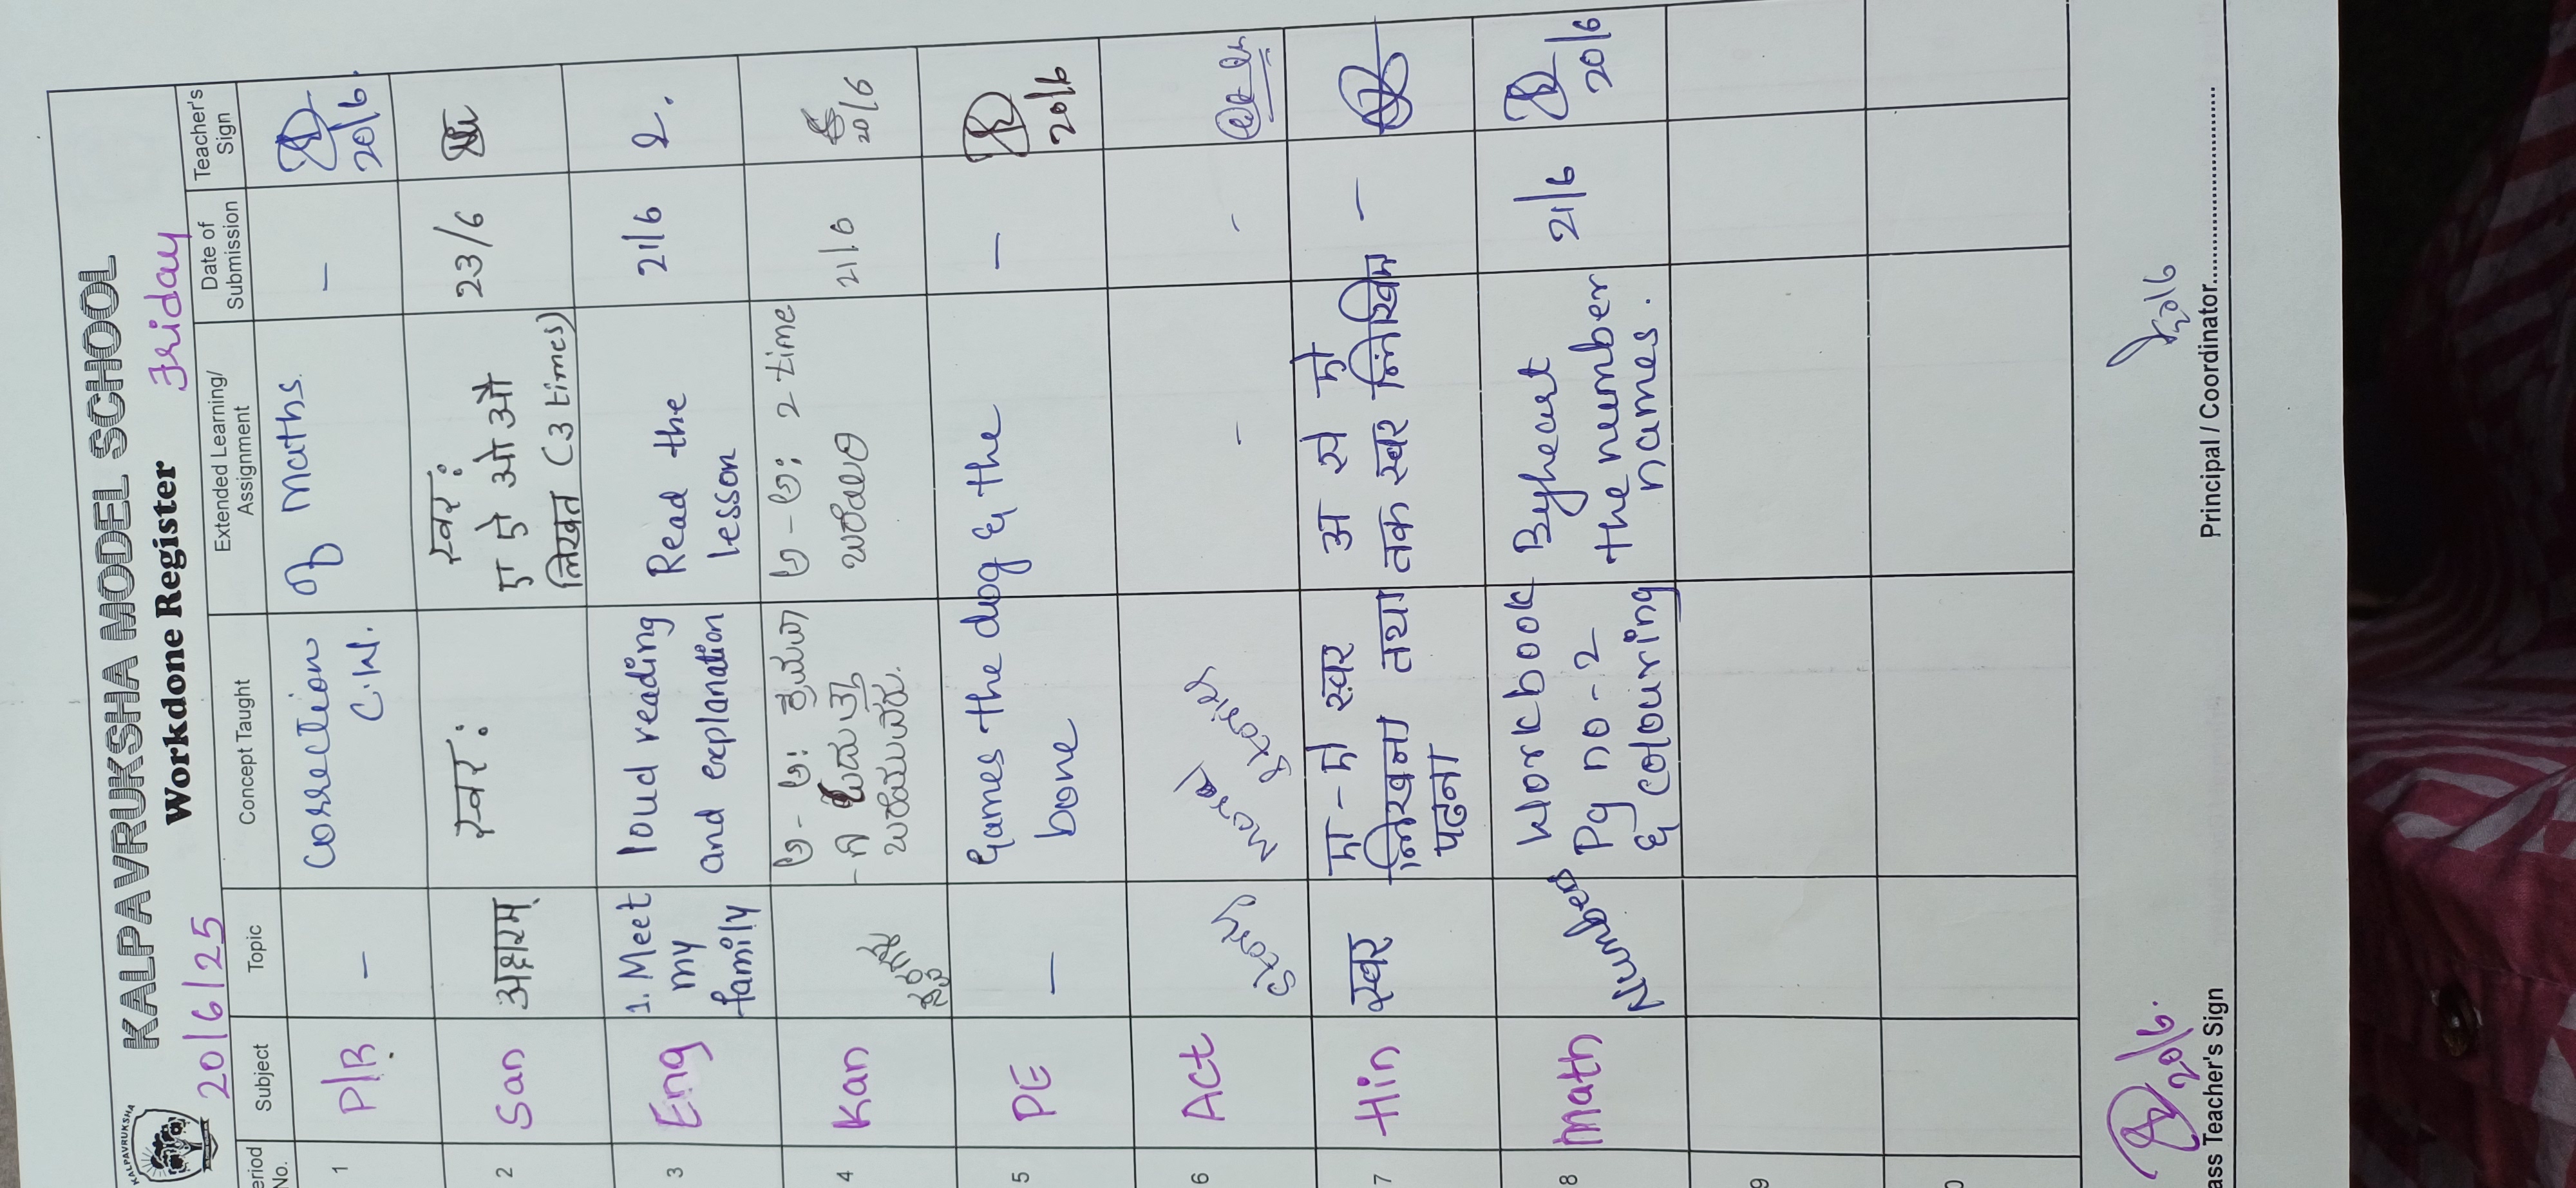 KALPAVRUKSHA
KALPAVRUKSHA MODEL SCHOOL
Workdone Register
20/6/25
Friday
eriod No.
Subject
Topic
Concept Taught
Extended Learning/ Assignment
Date of Submission
Teacher's Sign
1
P/B
–
correction of maths
C.W.
–
20/6.
2
San
अक्षरम्
स्वर:
स्वर:
ए ऐ ओ औ
लिखत (3 times)
23/6
3
Eng
1. Meet
my
family
loud reading
and explanation
Read the
lesson
21/6
4
Kan
ಅ - ಅ:
ಬರೆಯುವುದು.
ಅ - ಅ: 2 time
21/6
20/6
5
PE
–
Games the dog & the
bone
–
20/6
6
Act
Story
moral stories
-
-
7
Hin
स्वर
स्वर
लिखना तथा
पढना
अ से
तक स्वर
–
8
Math
Numbers
Workbook
Pg no-2
& colouring
Byheart
the number
names.
21/6
20/6
9
0
20/6.
ass Teacher's Sign
20/6
Principal / Coordinator